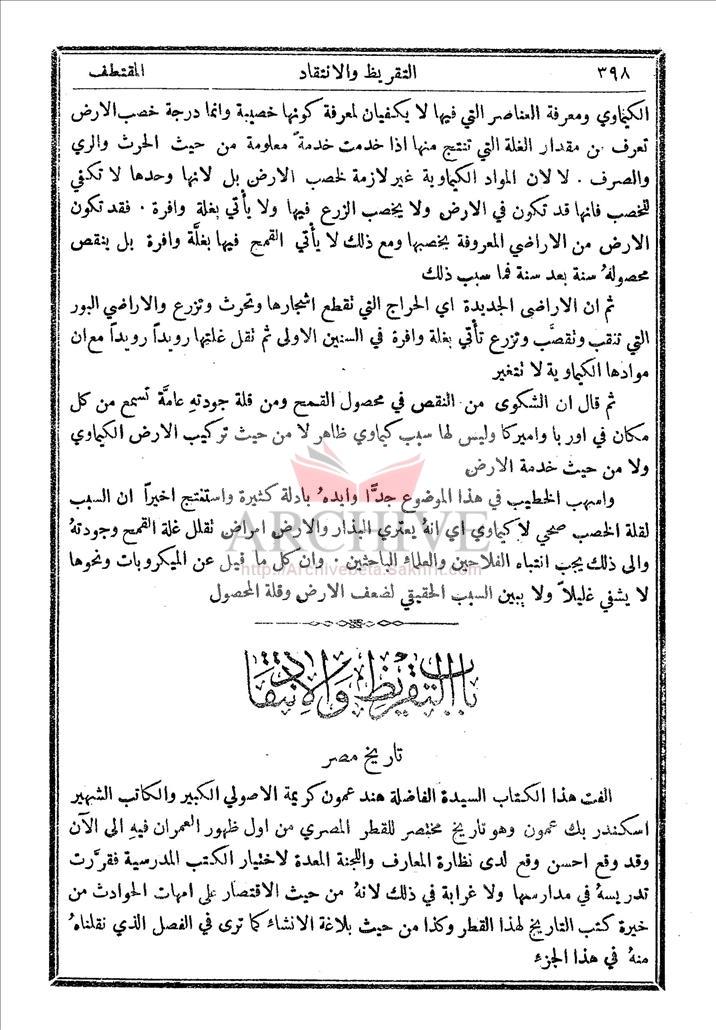 ٣٩٨ التقريظ والانتقاد المقتطف
الكيماوي ومعرفة العناصر التي فيها لا يكفيان لمعرفة كونها خصيبة وانما درجة خصب الارض
تعرف من مقدار الغلة التي تنتج منها اذا خدمت خدمةً معلومة من حيث الحرث والري
والصرف . لا لان المواد الكيماوية غير لازمة لخصب الارض بل لانها وحدها لا تكفي
للخصب فانها قد تكون في الارض ولا يخصب الزرع فيها ولا يأتي بغلة وافرة . فقد تكون
الارض من الاراضي المعروفة بخصبها ومع ذلك لا يأتي القمح فيها بغلَّة وافرة بل ينقص
محصولهُ سنة بعد سنة فما سبب ذلك
ثم ان الاراضي الجديدة اي الحراج التي تقطع اشجارها وتحرث وتزرع والاراضي البور
التي تنقب وتقصَّب وتزرع تأتي بغلة وافرة في السنين الاولى ثم تقل غلتها رويداً رويداً مع ان
موادها الكيماوية لا تتغير
ثم قال ان الشكوى من النقص في محصول القمح ومن قلة جودتهِ عامَّة تسمع من كل
مكان في اوربا واميركا وليس لها سبب كيماوي ظاهر لا من حيث تركيب الارض الكيماوي
ولا من حيث خدمة الارض
واسهب الخطيب في هذا الموضوع جدًّا وايدهُ بادلة كثيرة واستنتج اخيراً ان السبب
لقلة الخصب صحي لا كيماوي اي انهُ يعتري البذار والارض امراض تقلل غلة القمح وجودتهُ
والى ذلك يجب انتباه الفلاحين والعلماء الباحثين . وان كل ما قيل عن الميكروبات ونحوها
لا يشفي غليلاً ولا يبين السبب الحقيقي لضعف الارض وقلة المحصول
ARCHIVE
http://Archivebeta.Sakhrit.com
باب التقريظ والانتقاد
تاريخ مصر
الفت هذا الكتاب السيدة الفاضلة هند عمون كريمة الاصولي الكبير والكاتب الشهير
اسكندر بك عمون وهو تاريخ مختصر للقطر المصري من اول ظهور العمران فيهِ الى الآن
وقد وقع احسن وقع لدى نظارة المعارف واللجنة المعدة لاختيار الكتب المدرسية فقرَّرت
تدريسهُ في مدارسها ولا غرابة في ذلك لانهُ من حيث الاقتصار على امهات الحوادث من
خيرة كتب التاريخ لهذا القطر وكذا من حيث بلاغة الانشاء كما ترى في الفصل الذي نقلناهُ
منهُ في هذا الجزء